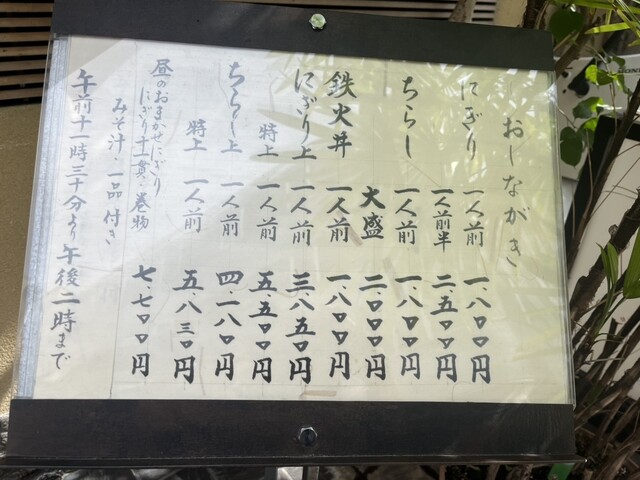 おしながき
にぎり 一人前 一、八〇〇円
一人前半 二、五〇〇円
ちらし 一人前 一、八〇〇円
大盛 二、〇〇〇円
鉄火丼 一人前 一、八〇〇円
にぎり上 一人前 三、八五〇円
特上 一人前 五、五〇〇円
ちらし上 一人前 四、一八〇円
特上 一人前 五、八三〇円
昼のおまかせにぎり
にぎり十一貫・巻物 七、七〇〇円
みそ汁・一品付き
午前十一時三十分より午後二時まで